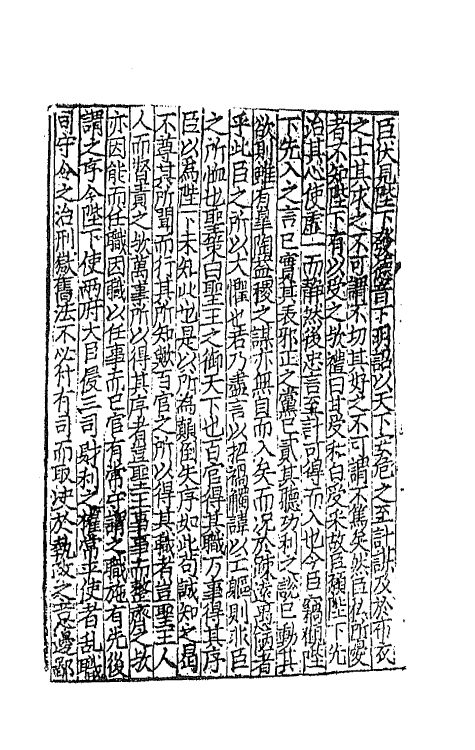 臣伏見陛下發德音下明詔以天下安危之至計訪及於布衣
之士其求之不可謂不切其好之不可謂不篤矣然臣私所憂
者不知陛下有以受之歟禮曰甘受和白受采故臣願陛下先
治其心使虛一而静然後忠言至計可得而入也今臣竊恐陛
下先入之言已實其衷邪正之黨已貳其聽功利之説已動其
欲則雖有臯陶益稷之謀亦無自而入矣而況於踈遠愚陋者
乎此臣之所以大懼也若乃盡言以招禍觸諱以亡軀則非臣
之所恤也聖策曰聖王之御天下也百官得其職万事得其序
臣以為陛下未知此也是以所為顛倒失序如此苟誠知之曷
不尊其所聞而行其所知歟百官之所以得其職者豈聖王人
人而督責之歟萬事所以得其序者豈聖王事事而整齊之歟
亦因能而任職因職以任事而已官有常守謂之職施有先後
謂之序今陛下使两府大臣侵三司財利之權常平使者乱職
司守令之治刑獄舊法不以付有司而取决於執政之意邊鄙